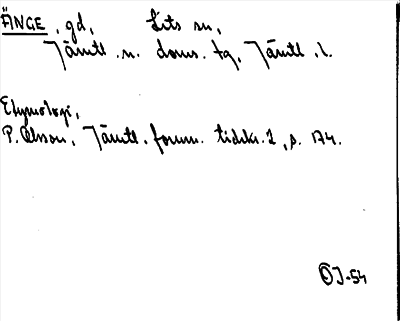 ÄNGE, gd, Lits sn,
Jämtl. n. doms. tg, Jämtl. l.
Etymologi,
P. Olsson, Jämtl. fornm. tidskr. 2, s. 174.
OJ-54